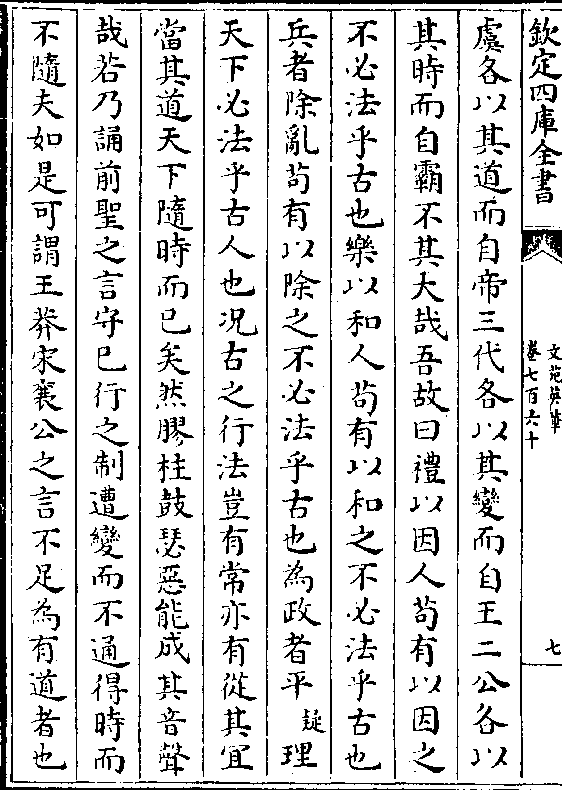 欽定四庫全書
文苑英華
卷七百六十
七
虞各以其道而自帝三代各以其變而自王二公各以
其時而自霸不其大哉吾故曰禮以因人苟有以因之
不必法乎古也樂以和人苟有以和之不必法乎古也
兵者除亂苟有以除之不必法乎古也為政者平疑理
天下必法乎古人也况古之行法豈有常亦有從其宜
當其道天下隨時而已矣然膠柱鼓瑟惡能成其音聲
哉若乃誦前聖之言守已行之制遭變而不通得時而
不隨夫如是可謂王莽宋襄公之言不足為有道者也